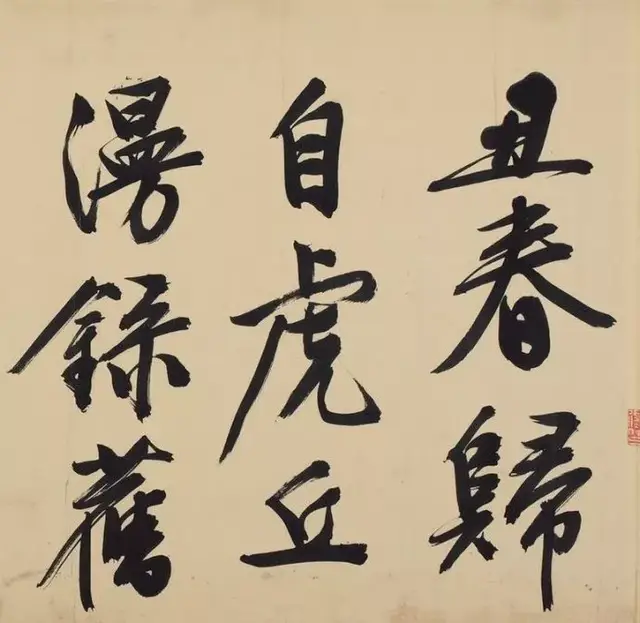 丑春歸
自虎丘
漫録舊